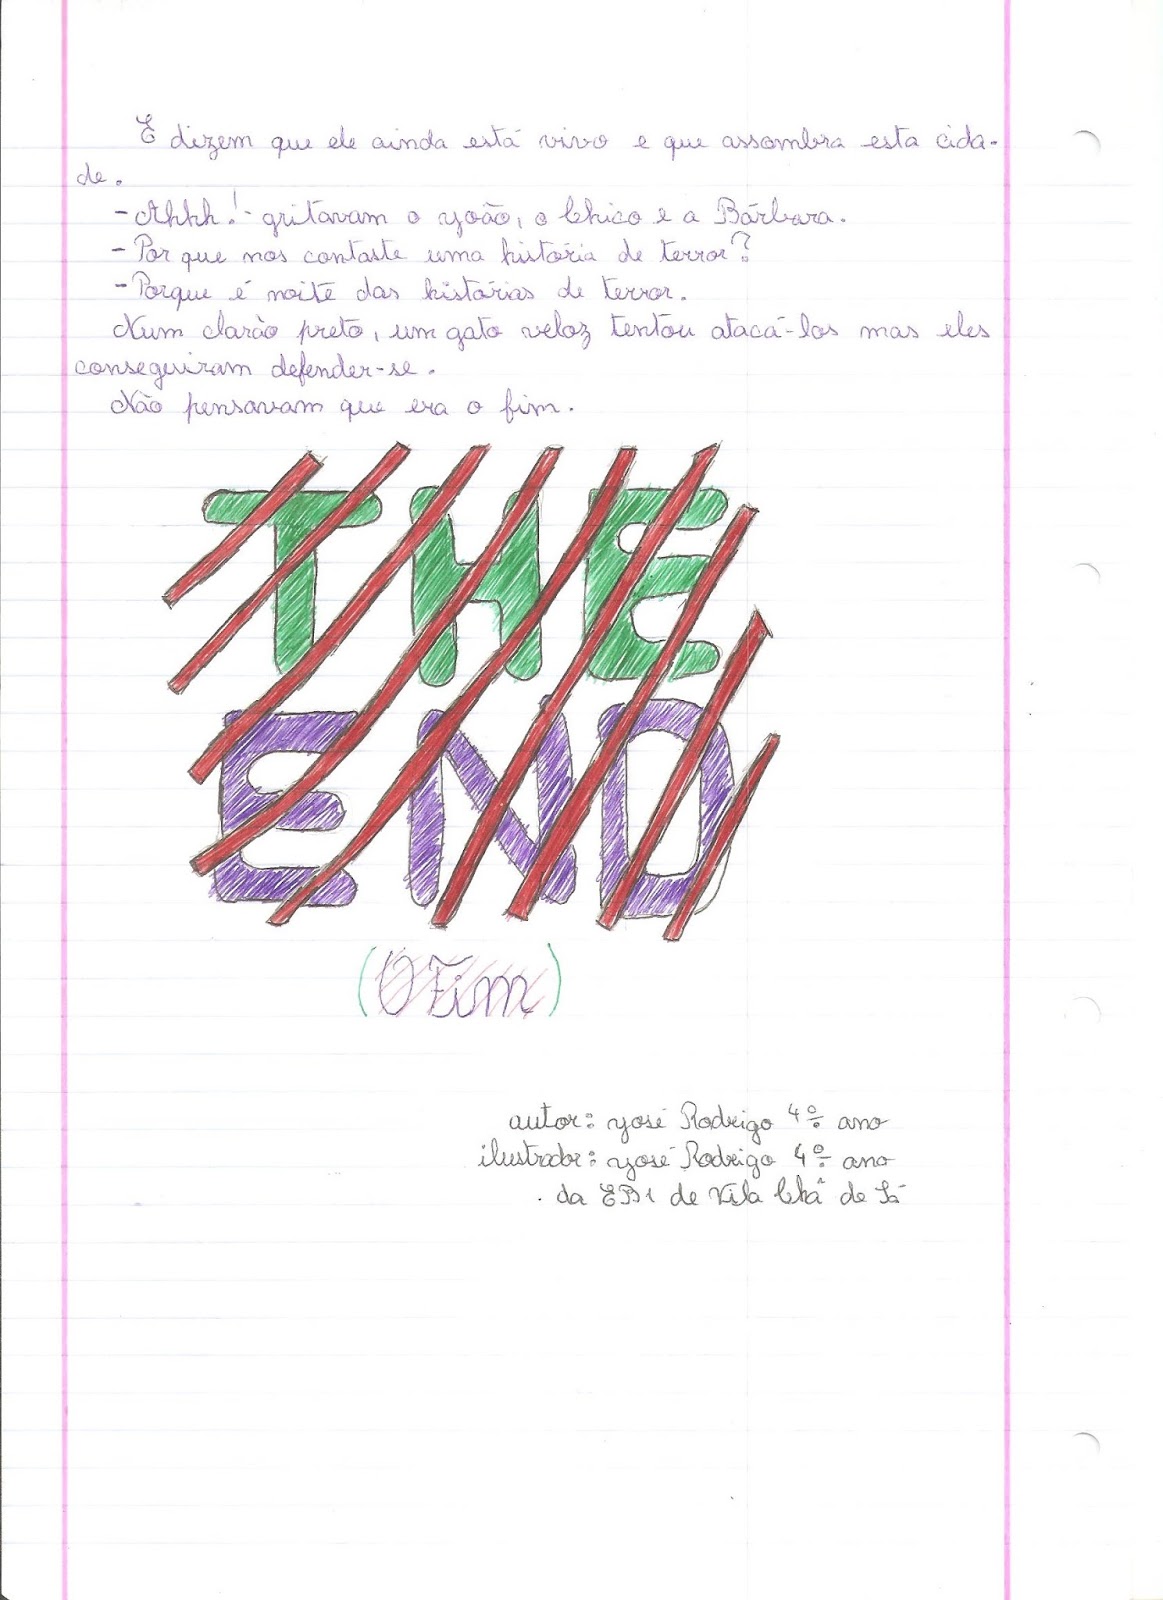 E dizem que ele ainda está vivo e que assombra esta cida-
de.
- Ahhh! - gritavam o João, o Chico e a Bárbara.
- Por que nos contaste uma história de terror?
- Porque é noite das histórias de terror.
Num clarão preto, um gato veloz tentou atacá-los mas eles
conseguiram defender-se.
Não pensavam que era o fim.
THE
END
(O Fim)
autor: José Rodrigo 4º ano
ilustrador: José Rodrigo 4º ano
da EB1 de Vila Chã de Sá